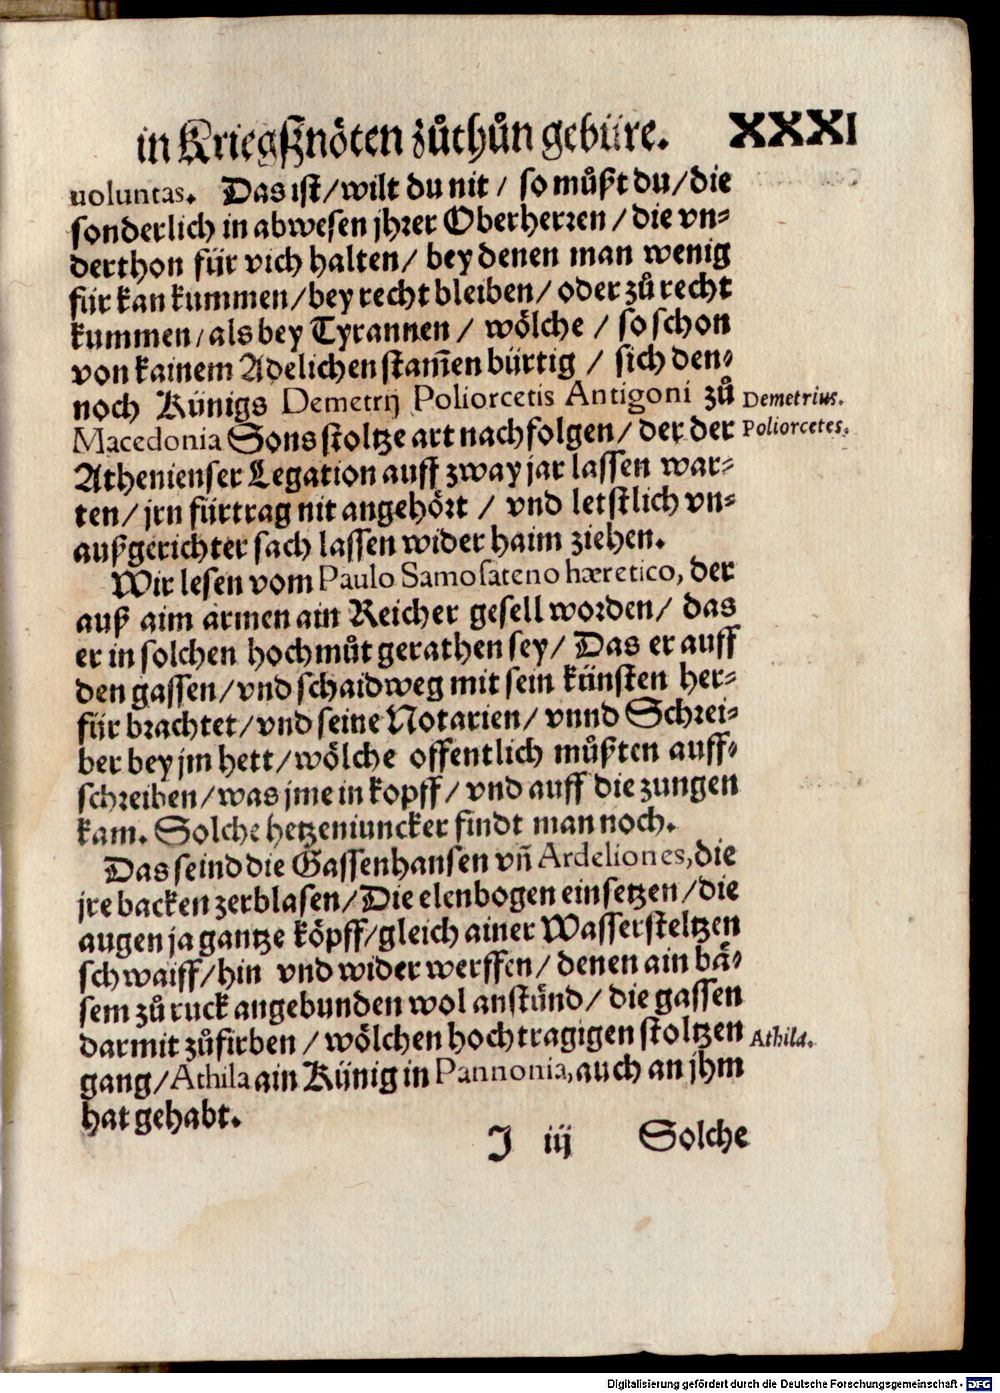 in Kriegßnöten zůthůn gebüre. XXXI
uoluntas. Das ist/wilt du nit / so můßt du/die
sonderlich in abwesen jhrer Oberherren / die vn⸗
derthon für vich halten/ bey denen man wenig
für kan kummen/bey recht bleiben/ oder zů recht
kummen/als bey Tyrannen / wölche / so schon
von kainem Adelichen stam̃en bürtig / sich den⸗
noch Künigs Demetrij Poliorcetis Antigoni zů
Demetrius.
Macedonia Sons stoltze art nachfolgen/ der der
Poliorcetes.
Athenienser Legation auff zway jar lassen war⸗
ten/ jrn fürtrag nit angehört / vnd letstlich vn⸗
außgerichter sach lassen wider haim ziehen.
Wir lesen vom Paulo Samosateno hæretico, der
auß aim armen ain Reicher gesell worden/ das
er in solchen hochmůt gerathen sey/ Das er auff
den gassen/vnd schaidweg mit sein künsten her⸗
für brachtet/vnd seine Notarien/ vnnd Schrei⸗
ber bey jm hett/wölche offentlich můßten auff⸗
schreiben/was jme in kopff/ vnd auff die zungen
kam. Solche hetzeniuncker findt man noch.
Das seind die Gassenhansen vñ Ardeliones,die
jre backen zerblasen/Die elenbogen einsetzen/die
augen ja gantze köpff/gleich ainer Wassersteltzen
schwaiff/hin vnd wider werffen/ denen ain bä⸗
sem zů ruck angebunden wol anstünd/ die gassen
darmit zůfirben / wölchen hochtragigen stoltzen
Athila.
gang/Athila ain Künig in Pannonia,auch an jhm
hat gehabt.
J iij Solche
Digitalisierung gefördert durch die Deutsche Forschungsgemeinschaft - DFG